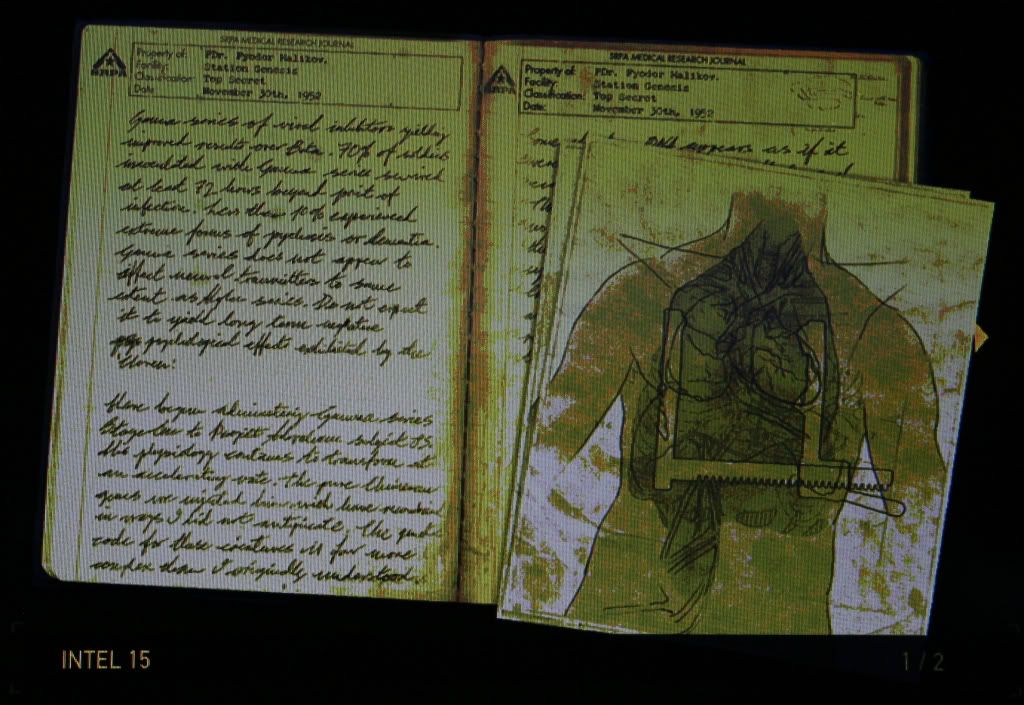 SRPA MEDICAL RESEARCH JOURNAL
SRPA
Property of: FDr. Fyodor Malikov.
Facility: Station Genesis
Classification: Top Secret
Date: November 30th, 1952
Gamma series of viral inhibitors yielding
improved results over Beta. 70% of soldiers
inoculated with Gamma series survived
at least 72 hours beyond point of
infection. Less than 10% experienced
extreme forms of psychosis or dementia.
Gamma series does not appear to
effect neural transmitters to same
extent as Alpha series. Do not expect
it to yield long term negative
psychological effect exhibited by the
Cloven.
Have begun administering Gamma series
to Project Abraham subject
his physiology continues to transform at
an accelerating rate. The pure Chimeran
genes we injected him with have
in ways I did not anticipate. The
code for these creatures is far more
complex than I originally understood.
SRPA MEDICAL RESEARCH JOURNAL
SRPA
Property of: FDr. Fyodor Malikov.
Facility: Station Genesis
Classification: Top Secret
Date: November 30th, 1952
DNA appears as if it
INTEL 15
1 / 2